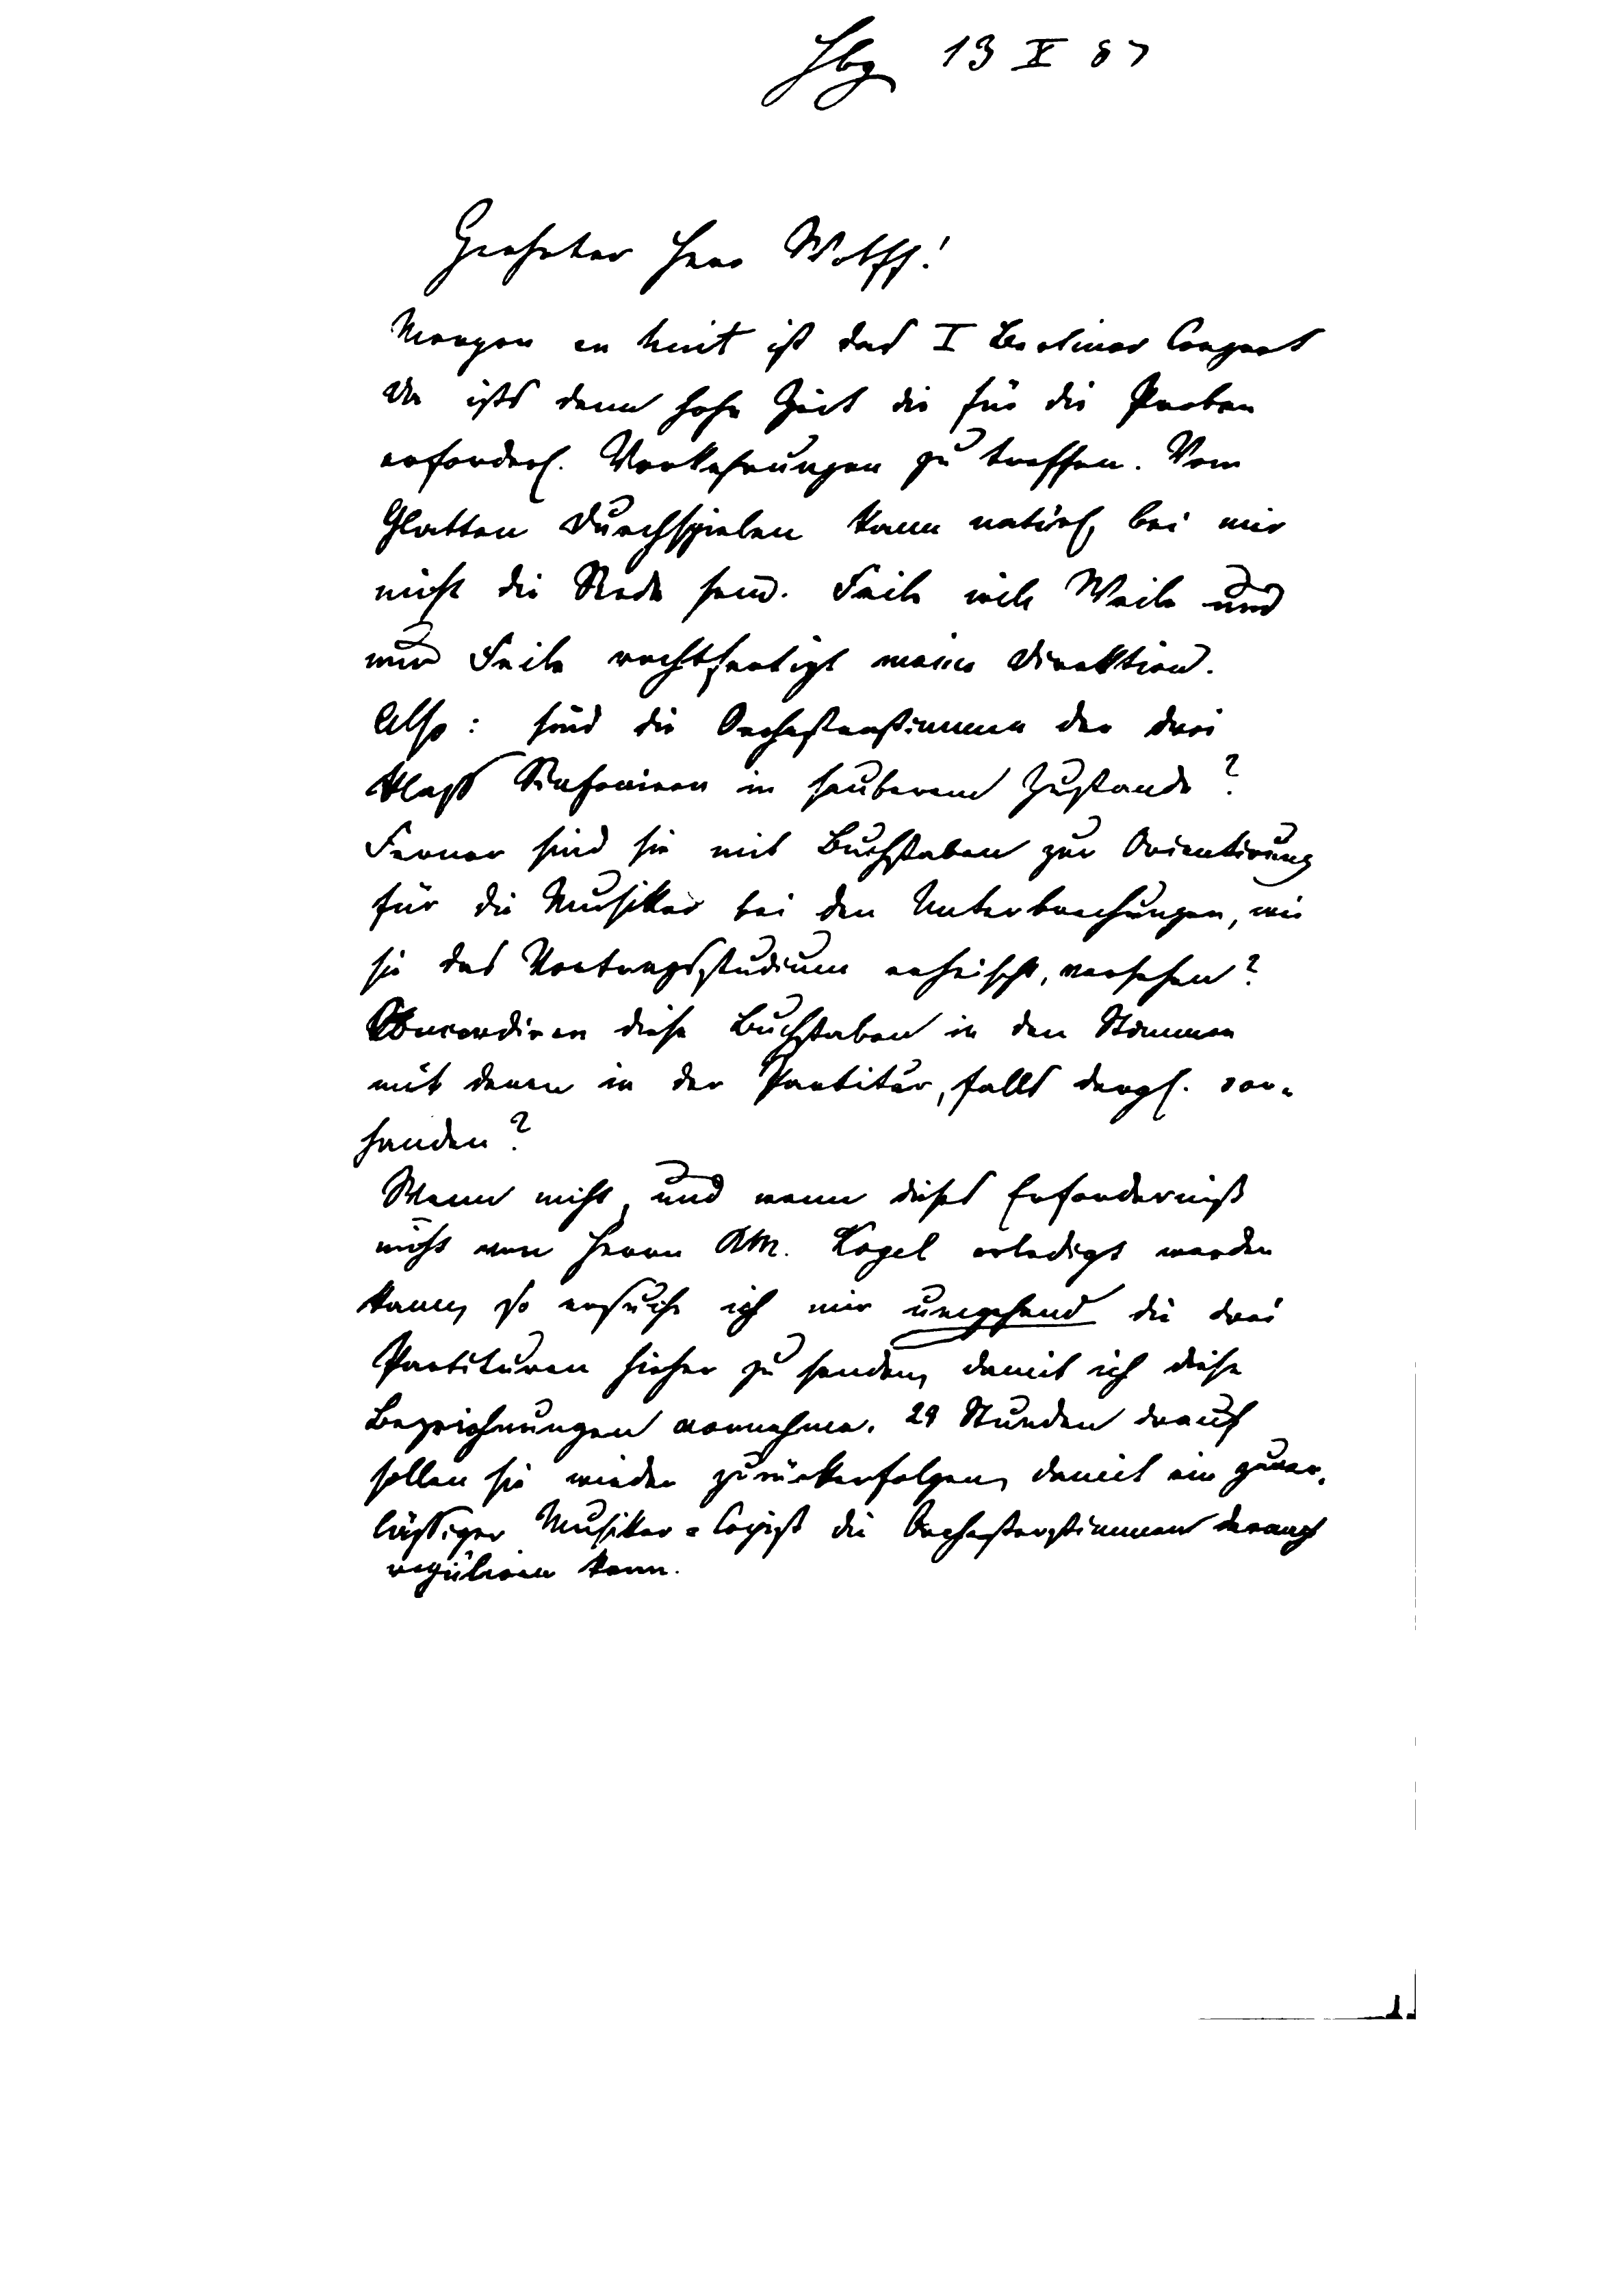 Hbg 13 X 87
Geehrter Herr Wolff!
Morgen en huit ist das I Berliner Conzert
da ists denn hohe Zeit die für die Proben
erforderl. Vorkehrungen zu treffen. Vom
Glatten Durchspielen kann natürl. bei mir
nicht die Rede sein. Feile mit Weile und
nur Feile rechtfertigt meine Direktion.
Also: sind die Orchesterstimmen der drei
klass Sinfonieen in sauberem Zustande?
Ferner sind sie mit Buchstaben zur Orientirung
für die Musiker bei den Unterbrechungen, wie
sie das Vortragsstudium erheischt, versehen?
Concordiren diese Buchstaben in den Stimmen
mit denen in der Partitur, falls dergl. vor-
handen?
Wenn nicht, und wenn dieses Erforderniß
nicht von Herrn KM. Kogel erledigt werden
kann, so ersuche ich mir umgehend die drei
Partituren hieher zu senden, damit ich diese
Bezeichnungen vornehme. 24 Stunden drauf
sollen sie wieder zurückerfolgen, damit ein zuver-
lässiger Musiker-Copist die Orchesterstimmen danach
reguliren kann.